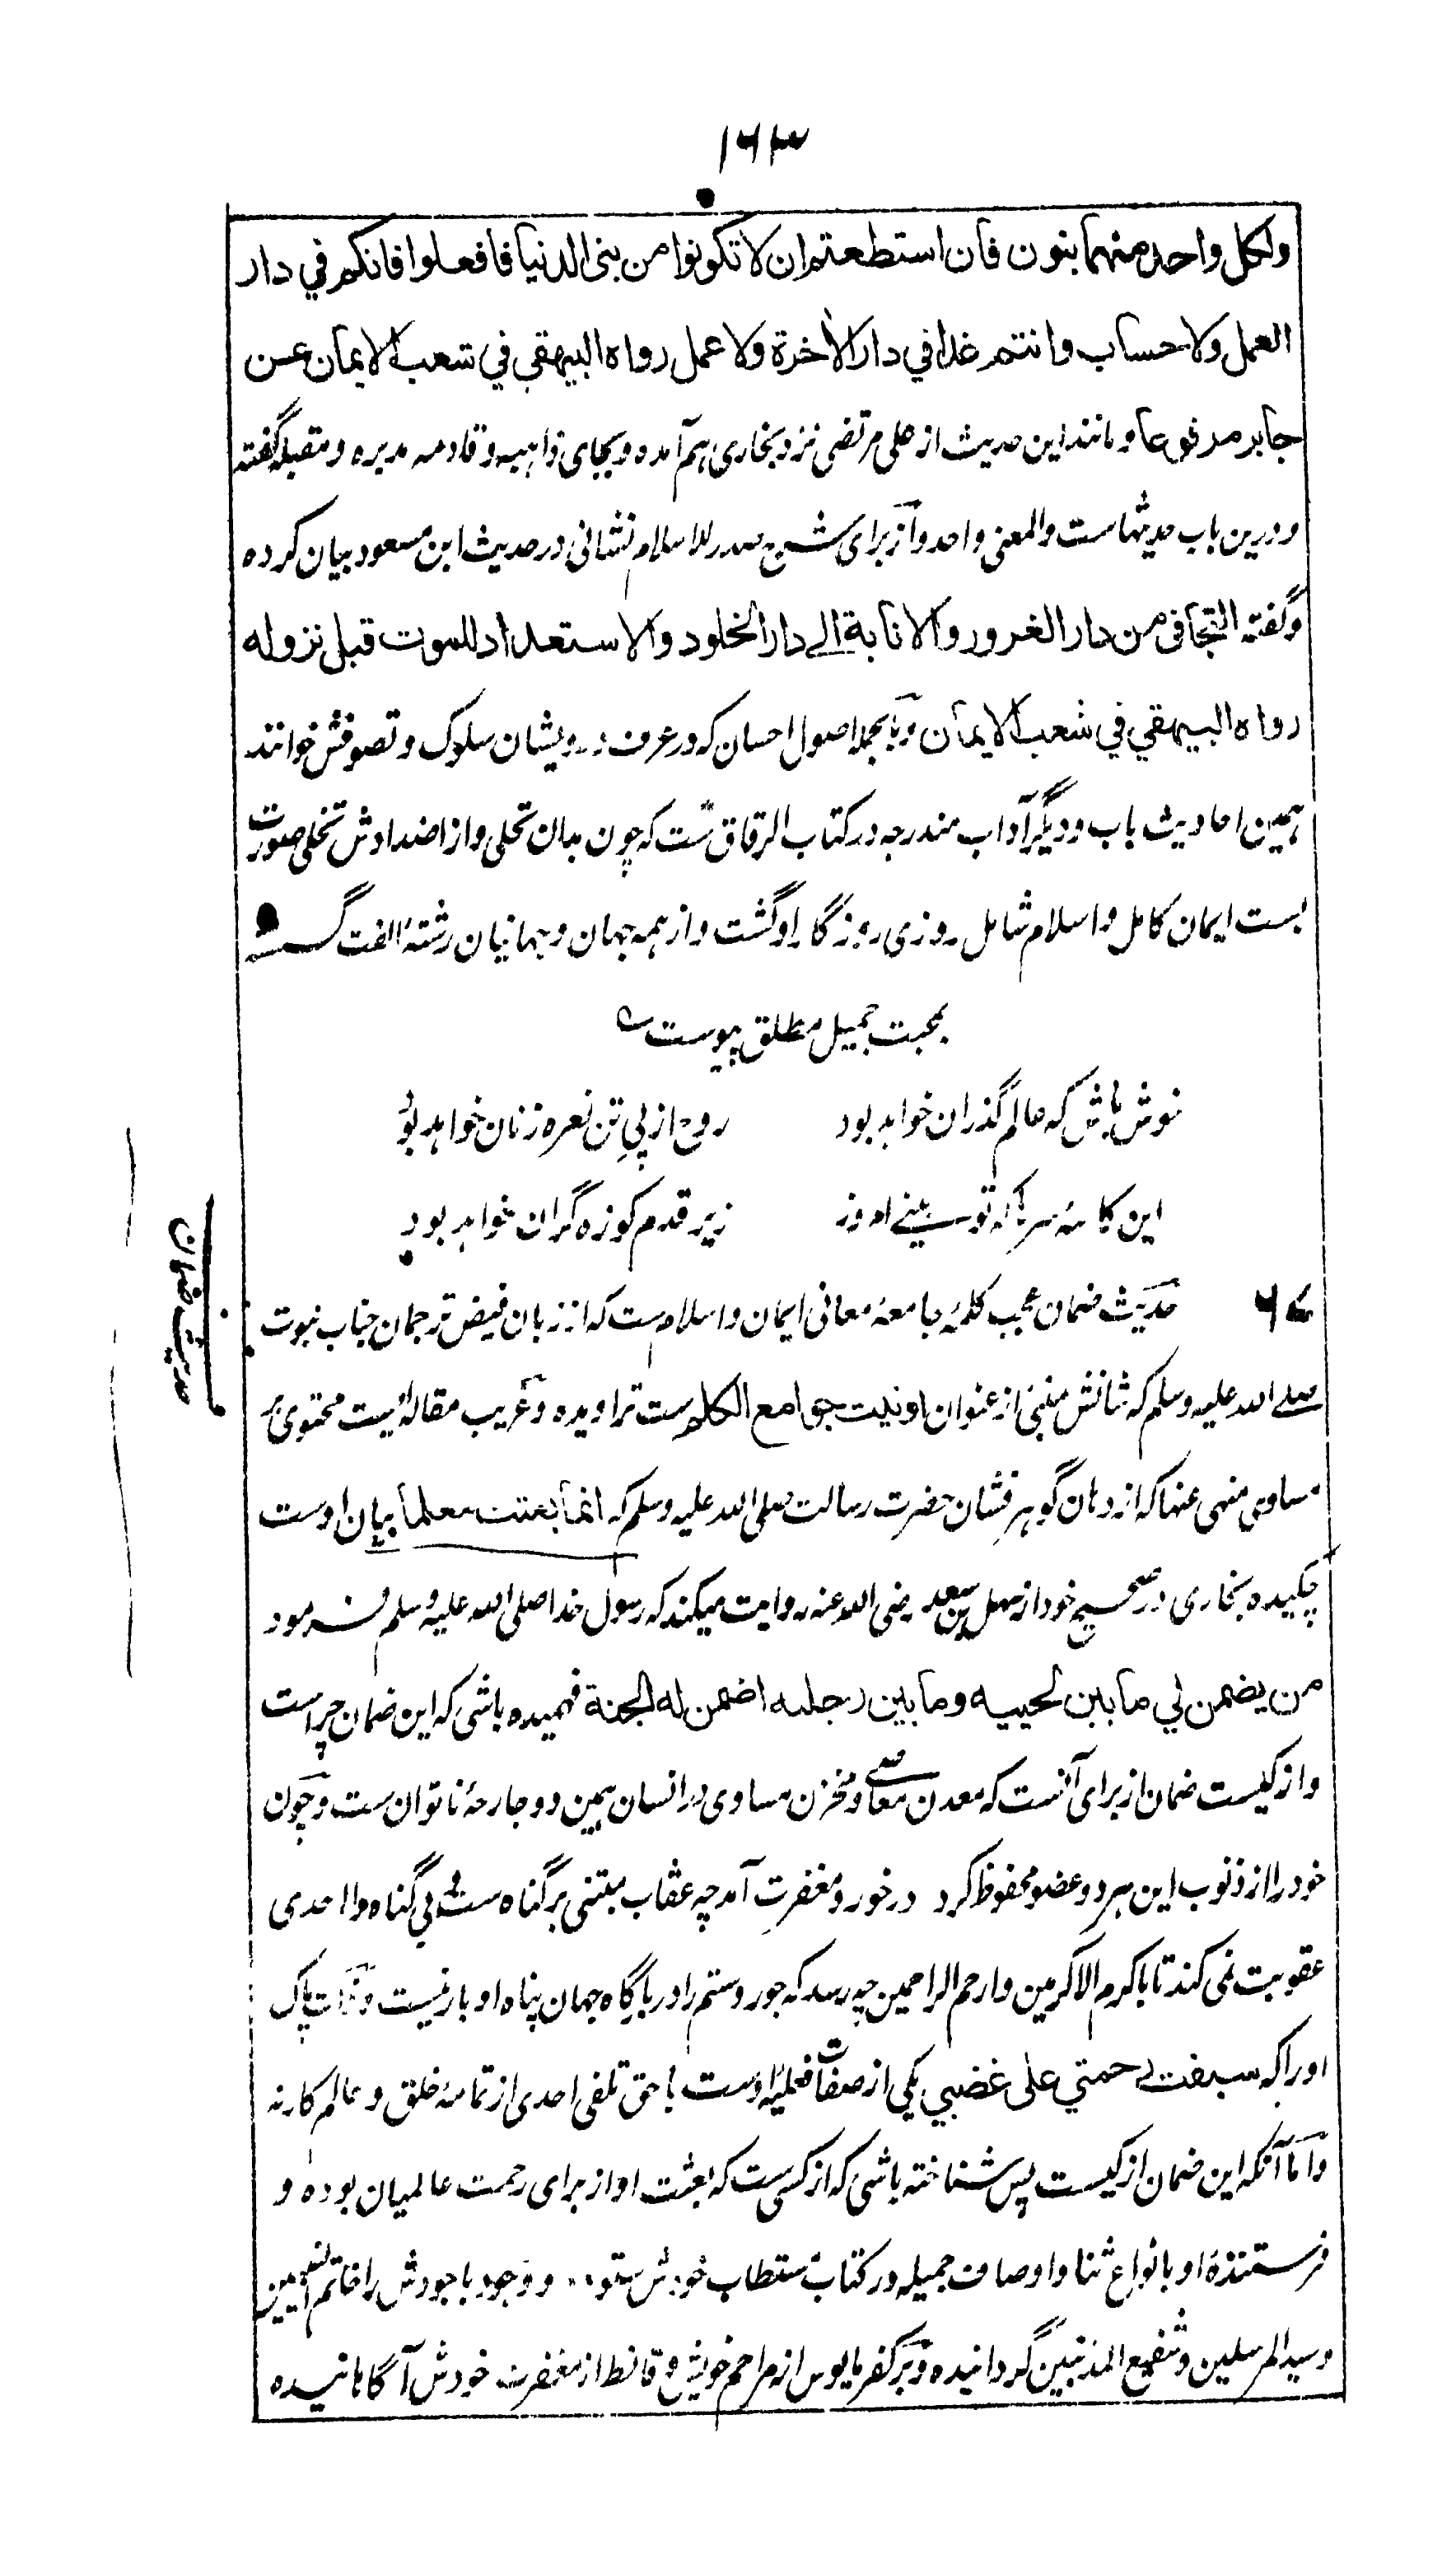 ۱۶۳
ولكل واحد منهما بنون فان استطعتم ان لا تكونوا من بنى الدنيا فافعلوا فانكم في دار
العمل ولا حساب وانتم غدا في دار الاخرة ولا عمل رواه البيهقي في شعب الايمان عن
جابر مرفوعا و مانند این حدیث از علی مرتضی نزد بخاری هم آمده و بجای ذاهبه و قادمه مدبره و مقبله گفته
و درین باب حدیثهاست والمعنی واحد و از برای شرح صدر للاسلام نشانی در حدیث ابن مسعود بیان کرده
و گفته التجافى من دار الغرور والانابة الى دار الخلود والاستعداد للموت قبل نزوله
رواه البيهقي في شعب الايمان و بالجمله اصول احسان که در عرف درویشان سلوک و تصوفش خوانند
همین احادیث باب و دیگر آداب مندرجه در کتاب الرقاق ست که چون بدان تحلی و از اضدادش تخلی صورت
بست ایمان کامل و اسلام شامل روزی روزگار او گشت و از همه جهان و جهانیان رشتهٔ الفت گسسته
بمحبت جمیل مطلق پیوست
نوش باش که عالم گذران خواهد بود روح از پیِ تن نعره زنان خواهد بود
این کاسهٔ سرها که تو بینی امروز زیر قدم کوزه گران خواهد بود
حدیث ضمان
۶۷ حدیث ضمان عجب کلمهٔ جامعهٔ معانی ایمان و اسلام ست که از زبان فیض ترجمان جناب نبوت
صلے الله علیه وسلم که شانش منبئ از عنوان اوتيت جوامع الكلم ست تراویده و غریب مقالهٔ ایست محتوی بر
مساوی منهی عنها که از دهان گوهر فشان حضرت رسالت صلی الله علیه وسلم که انما بعثت معلما بیان اوست
چکیده بخاری در صحیح خود از سهل بن سعد رضی الله عنه روایت میکند که رسول خدا صلی الله علیه وسلم فرمود
من يضمن لي ما بين لحييه وما بين رجليه اضمن له الجنة فهمیده باشی که این ضمان چراست
و از کیست ضمان از برای آنست که معدن معاصے و مخزن مساوی در انسان همین دو جارحهٔ ناتوان ست و چون
خود را از ذنوب این هر دو عضو محفوظ کرد درخور و مغفرت آمد چه عقاب مبتنی بر گناه ست و بی گناه را احدی
عقوبت نمی کند تا باکرم الاکرمین و ارحم الراحمین چه رسد که جور و ستم را در بارگاه جهان پناه او بار نیست و ذات پاک
او را که سبقت رحمتي على غضبي یکی از صفات فعلیهٔ اوست با حق تلفی احدی از تمامهٔ خلق و عالم کار نه
و اما آنکه این ضمان از کیست پس شناخته باشی که از کسی ست که بعثت او از برای رحمت عالمیان بوده و
فرستندهٔ او بانواع ثنا و اوصاف جمیله در کتاب مستطاب خودش ستوده و وجود باجودش را خاتم النبیین
و سید المرسلین و شفیع المذنبین گردانیده و بر کفر مایوس از مراحم خویش و قانط از مغفرت خودش آگاهانیده